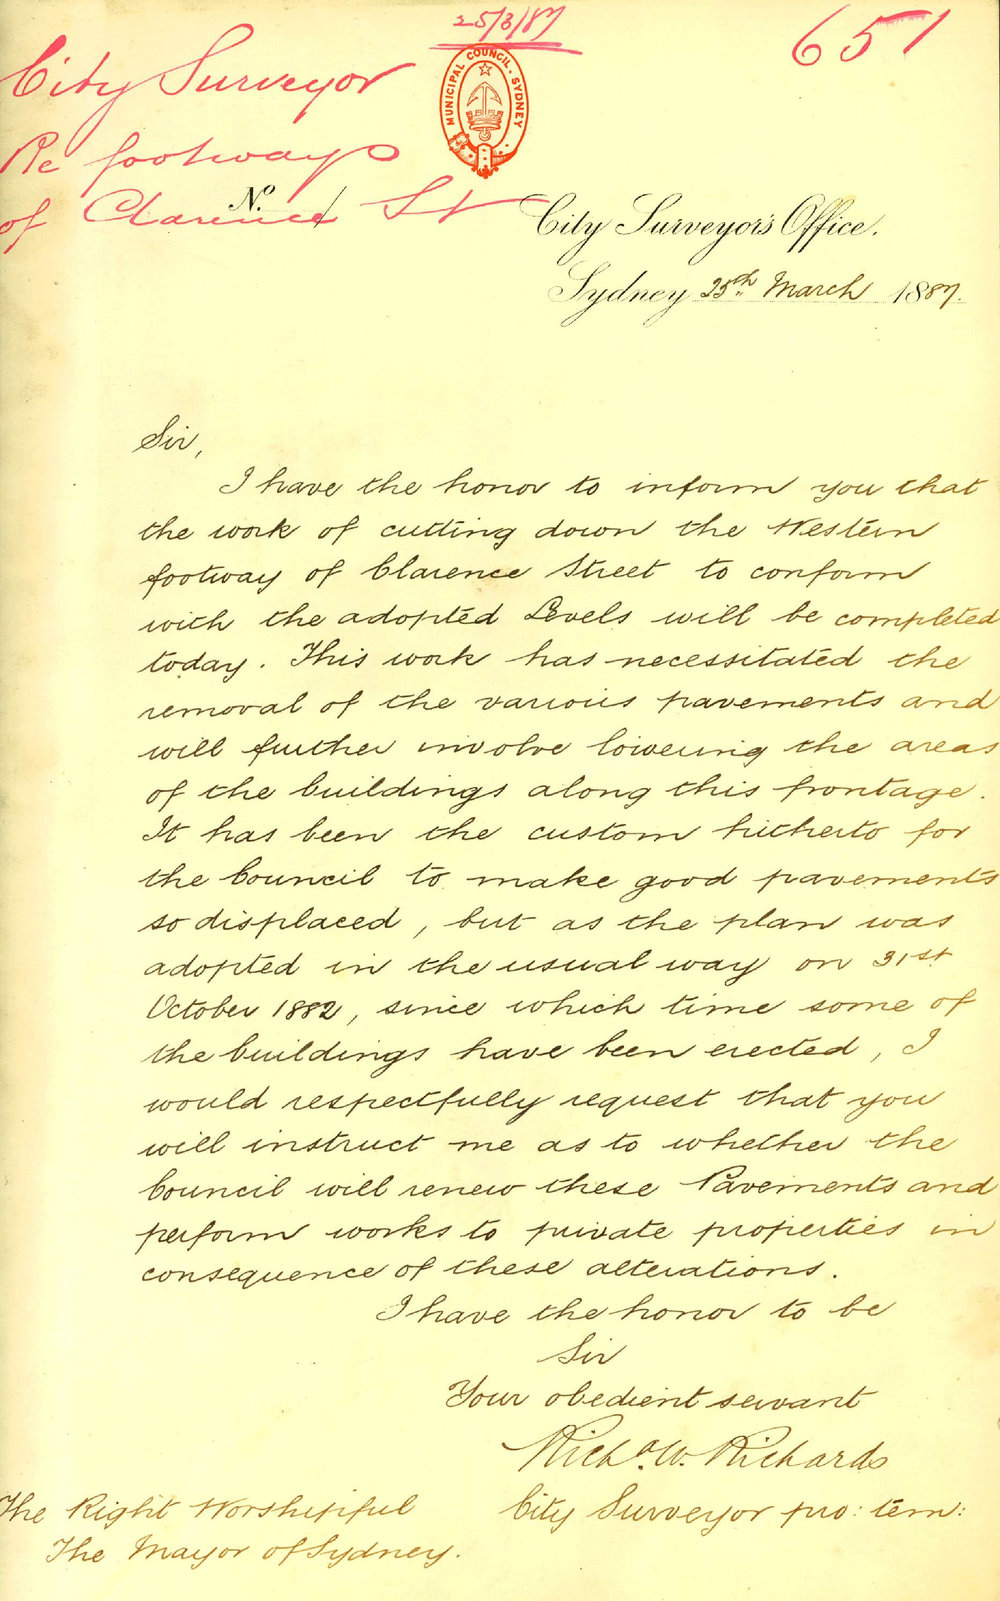 25/3/87
651
City Surveyor
Re footways
of Clarence St
MUNICIPAL COUNCIL. SYDNEY
No.
City Surveyor's Office.
Sydney 25th March 1887.
Sir,
I have the honor to inform you that
the work of cutting down the Western
footway of Clarence Street to conform
with the adopted Levels will be completed
today. This work has necessitated the
removal of the various pavements and
will further involve lowering the areas
of the buildings along this frontage.
It has been the custom hitherto for
the Council to make good pavements
so displaced, but as the plan was
adopted in the usual way on 31st
October 1882, since which time some of
the buildings have been erected, I
would respectfully request that you
will instruct me as to whether the
Council will renew these Pavements and
perform works to private properties in
consequence of these alterations.
I have the honor to be
Sir
Your obedient servant
Richd. W. Richards
City Surveyor pro: tem:
The Right Worshipful
The Mayor of Sydney.